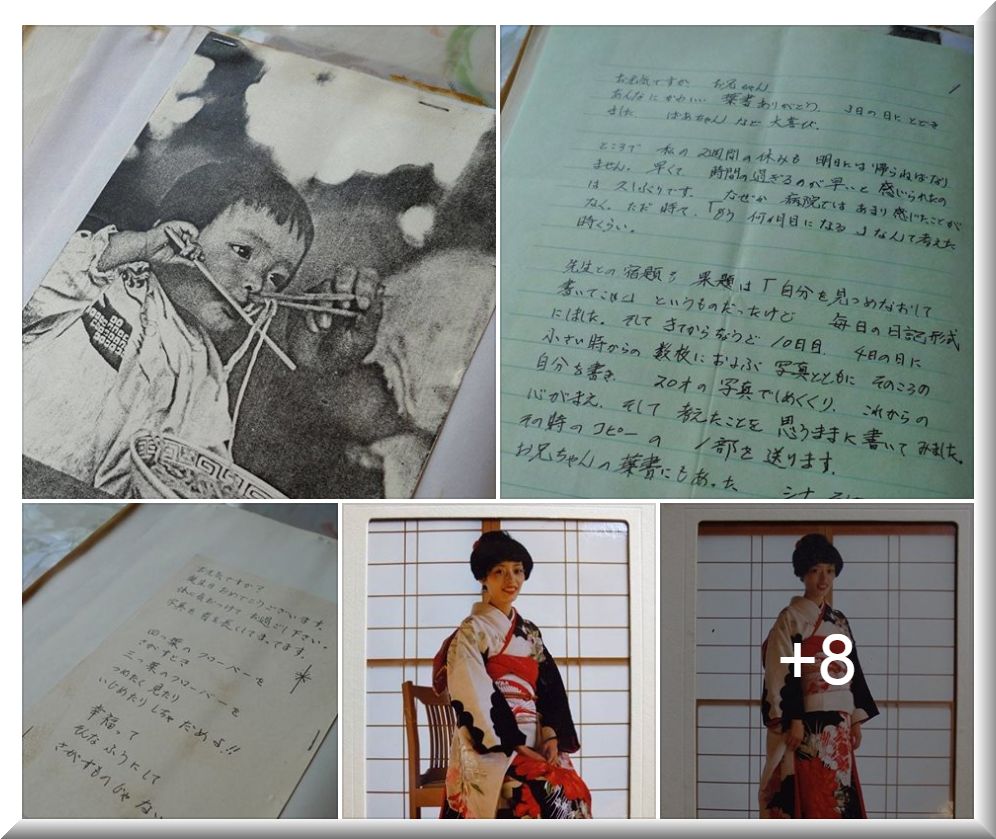 お元気ですか お兄ちゃん
あんなにかわいい 葉書ありがとう。 3日の日に とどき
ました ばあちゃんなど 大喜び.
ところで 私の 2週間の休みも 明日には帰らねばなり
ません。早くて 時間の過ぎるのが早いと 感じられたの
は 久しぶりです。 なぜか 病院では あまり感じたことが
なく、ただ 時々、「もう 何ヶ月目になる」なんて考えた
時くらい。
先生との宿題 課題は「自分を見つめなおして
書いてこい」というものだったけど 毎日の日記形式
にしました。そして きてからちょうど 10日目. 4日の日に
小さい時からの 数枚におよぶ 写真とともに そのころの
自分を書き. 20才の写真でしめくくり. これからの
心がまえ. そして 考えたことを 思うままに書いてみました。
その時のコピーの 1部を送ります.
お兄ちゃんの葉書にもあった
お元気ですか?
誕生日おめでとうございます。
体に気をつけて お過ごし下さい。
写真を首を長くしてまってます。
四つ葉のクローバーを
さがすとき
三つ葉のクローバーを
つめたく見たり
いじめたりしちゃだめよ!!
幸福って
そんなふうにして
さがすものじゃない
+8